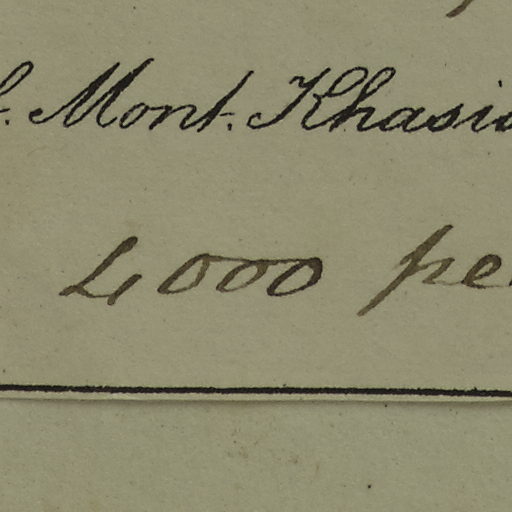 Mont. Khasia
4000 pe